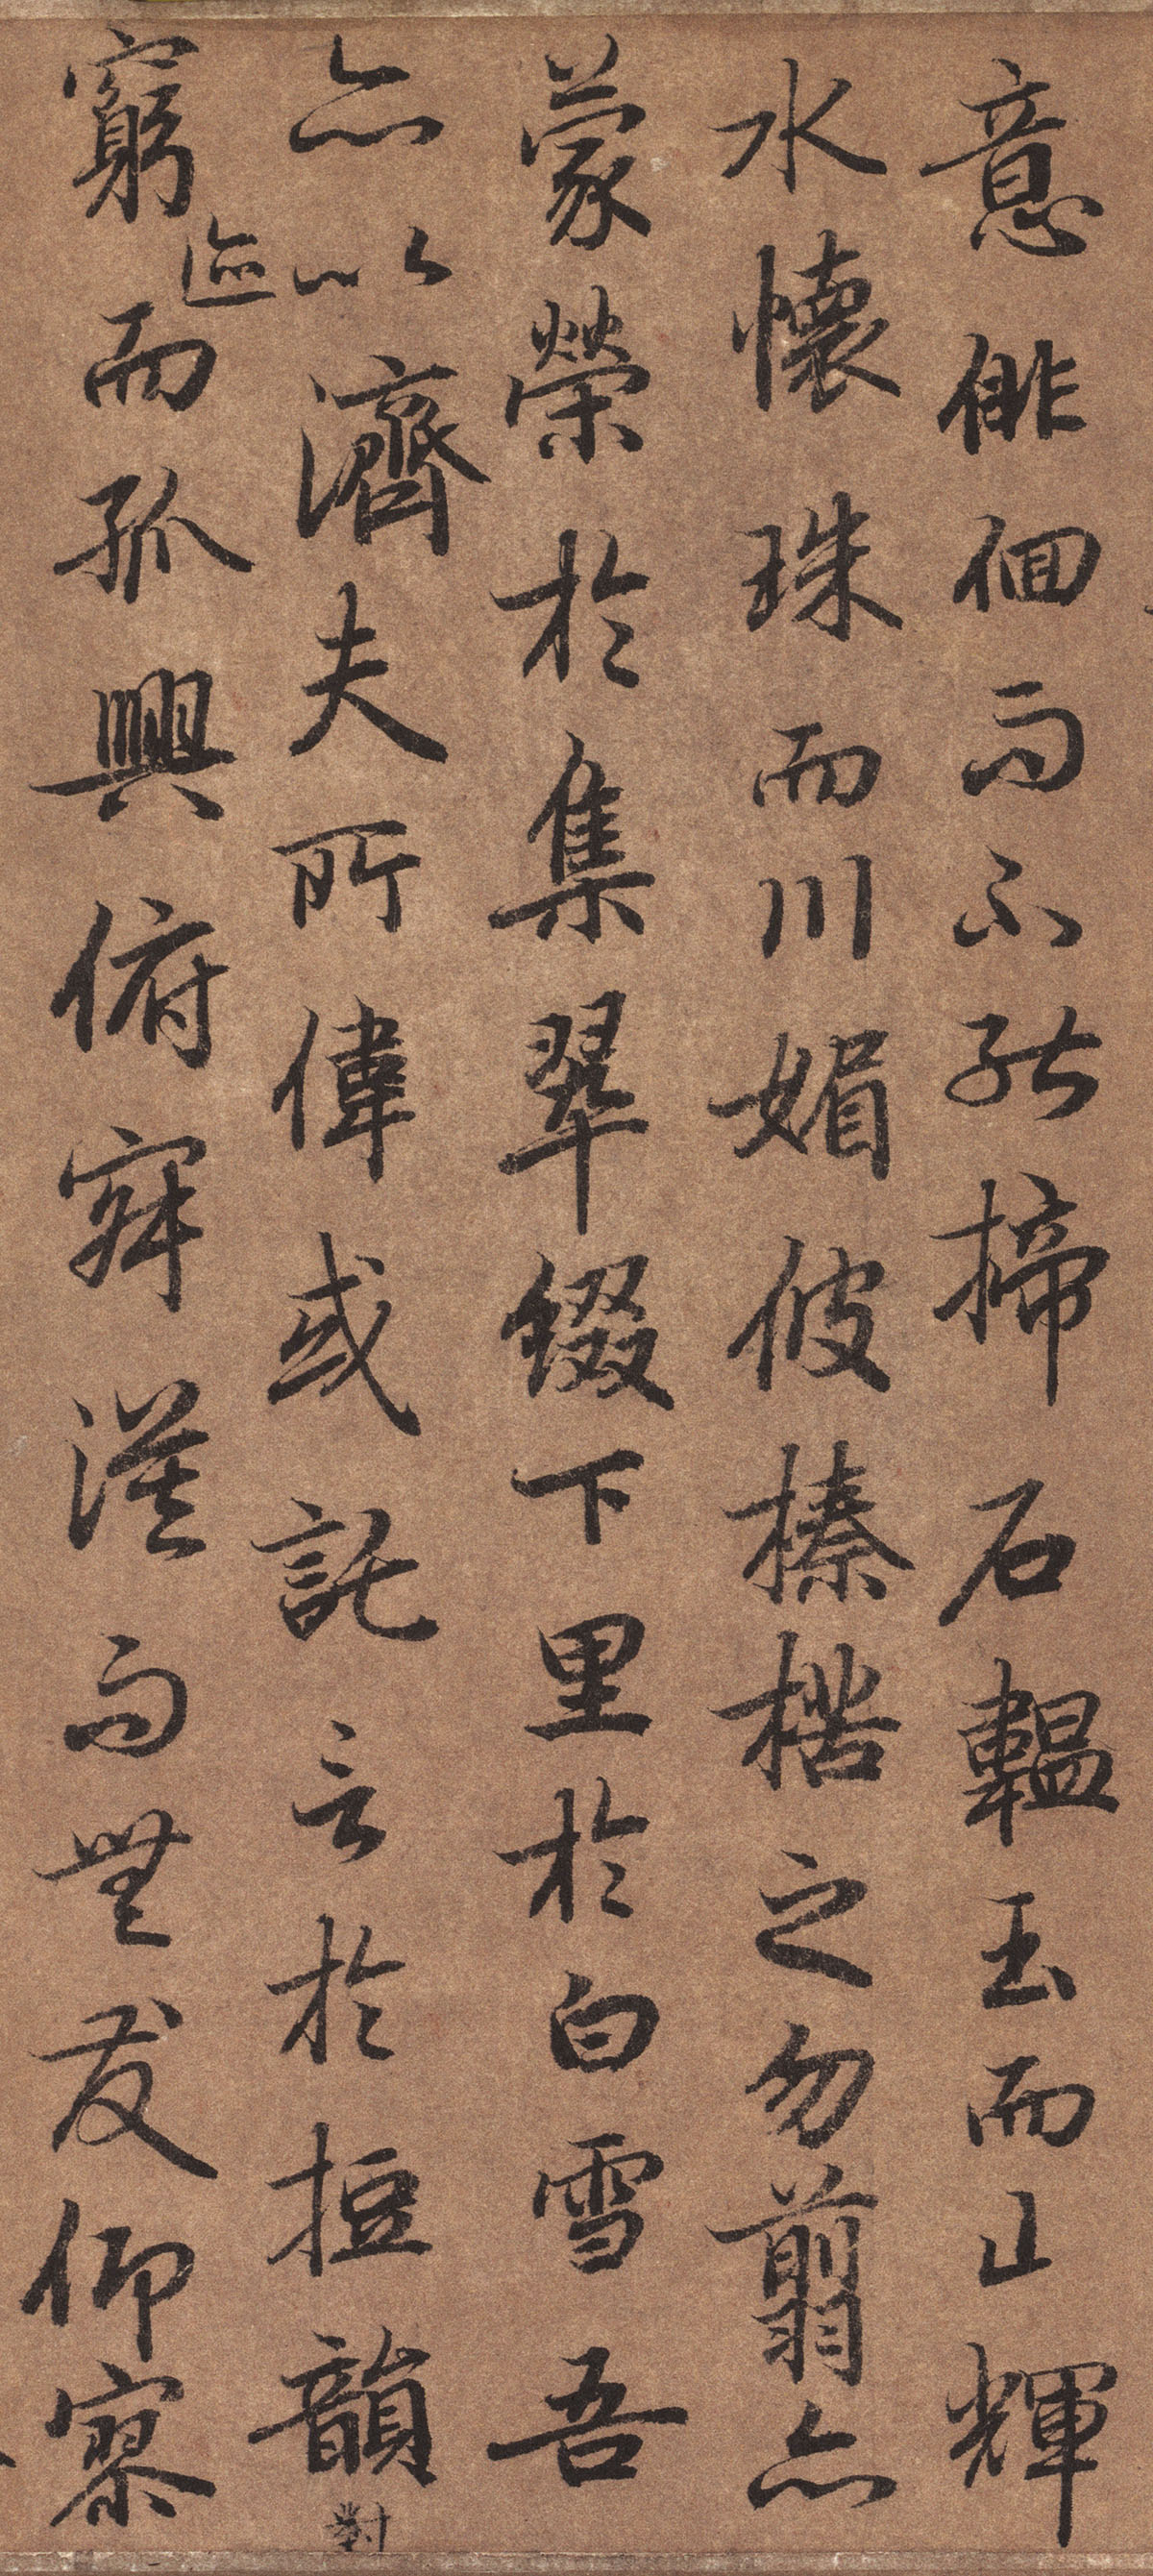 意徘徊而不能揥石韞玉而山輝
水懷珠而川媚彼榛楛之勿翦亦
蒙榮於集翠綴下里於白雪吾
亦以濟夫所偉或託言於短韻對
窮迹而孤興俯寂漠而無友仰寥